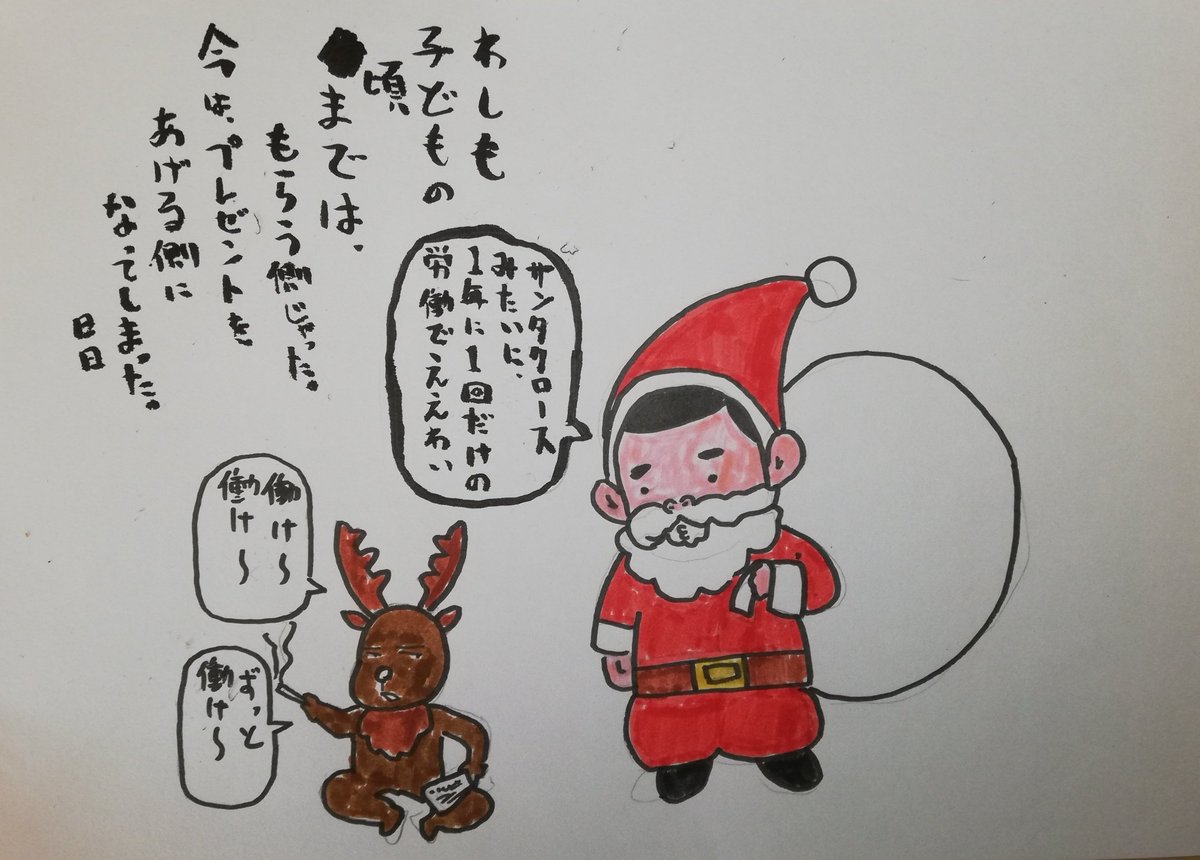 わしも
子どもの
頃
までは、
もらう側じゃった。
今は、プレゼントを
あげる側に
なってしまった。
日日
サンタクロース
みたいに、
1年に1回だけの
労働でええわい
働け～
働け～
ずっと
働け～